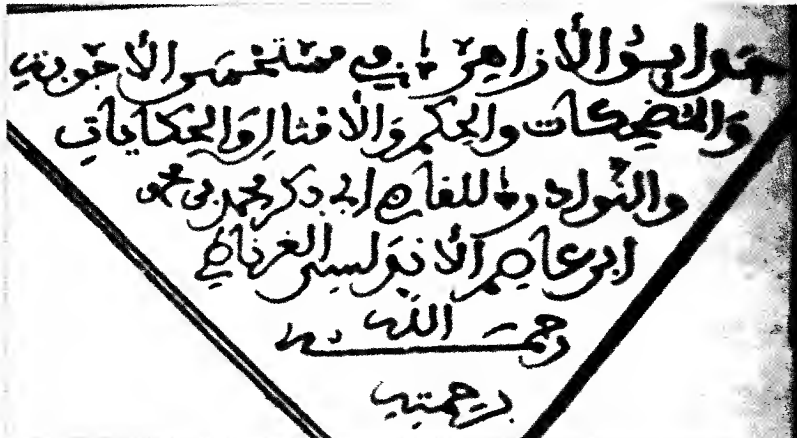 حدائق الأزاهر في مستحسن الأجوبة
والمضحكات والحكم والأمثال والحكايات
والنوادر للقاضي أبي بكر محمد بن محمد
ابن عاصم الأندلسي الغرناطي
رحمه الله
برحمته